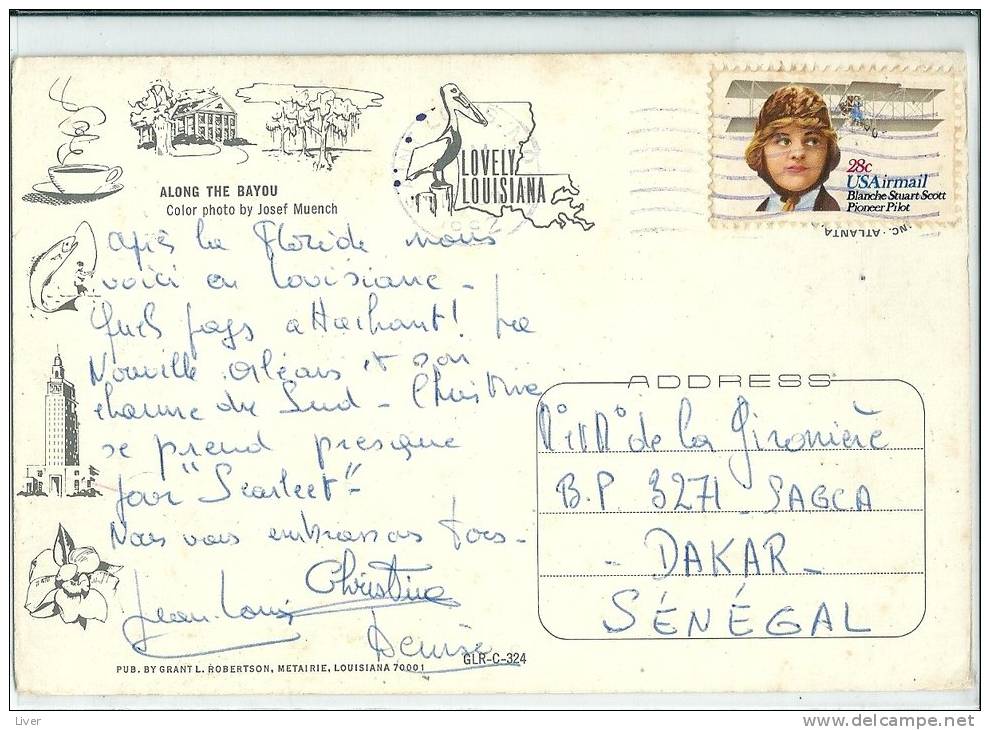 ALONG THE BAYOU
Color photo by Josef Muench
LOVELY
LOUISIANA
28c
USAirmail
Blanche Stuart Scott
Pioneer Pilot
INC. ATLANTA,
après la Floride nous
voici en Louisiane -
Quel pays attachant! La
Nouvelle Orléans et son
charme du Sud - Christine
se prend presque
pour "Scarlett" -
Nous vous embrassons tous -
Christine
Jean-Louis
Denise
ADDRESS
de la Gironière
B.P 3271 - SAGCA
- DAKAR -
SÉNÉGAL
PUB. BY GRANT L. ROBERTSON, METAIRIE, LOUISIANA 70001
GLR-C-324
Liver
www.delcampe.net